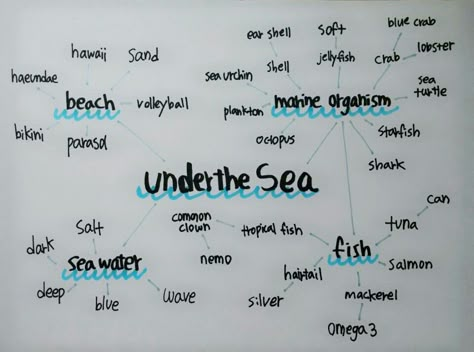 hawaii
sand
haeundae
beach
volleyball
bikini
parasol
ear shell
soft
blue crab
shell
jellyfish
crab
lobster
sea urchin
marine organism
sea
turtle
plankton
octopus
starfish
shark
under the Sea
salt
dark
sea water
deep
blue
wave
common
clown
tropical fish
nemo
fish
can
tuna
salmon
hairtail
silver
mackerel
Omega 3